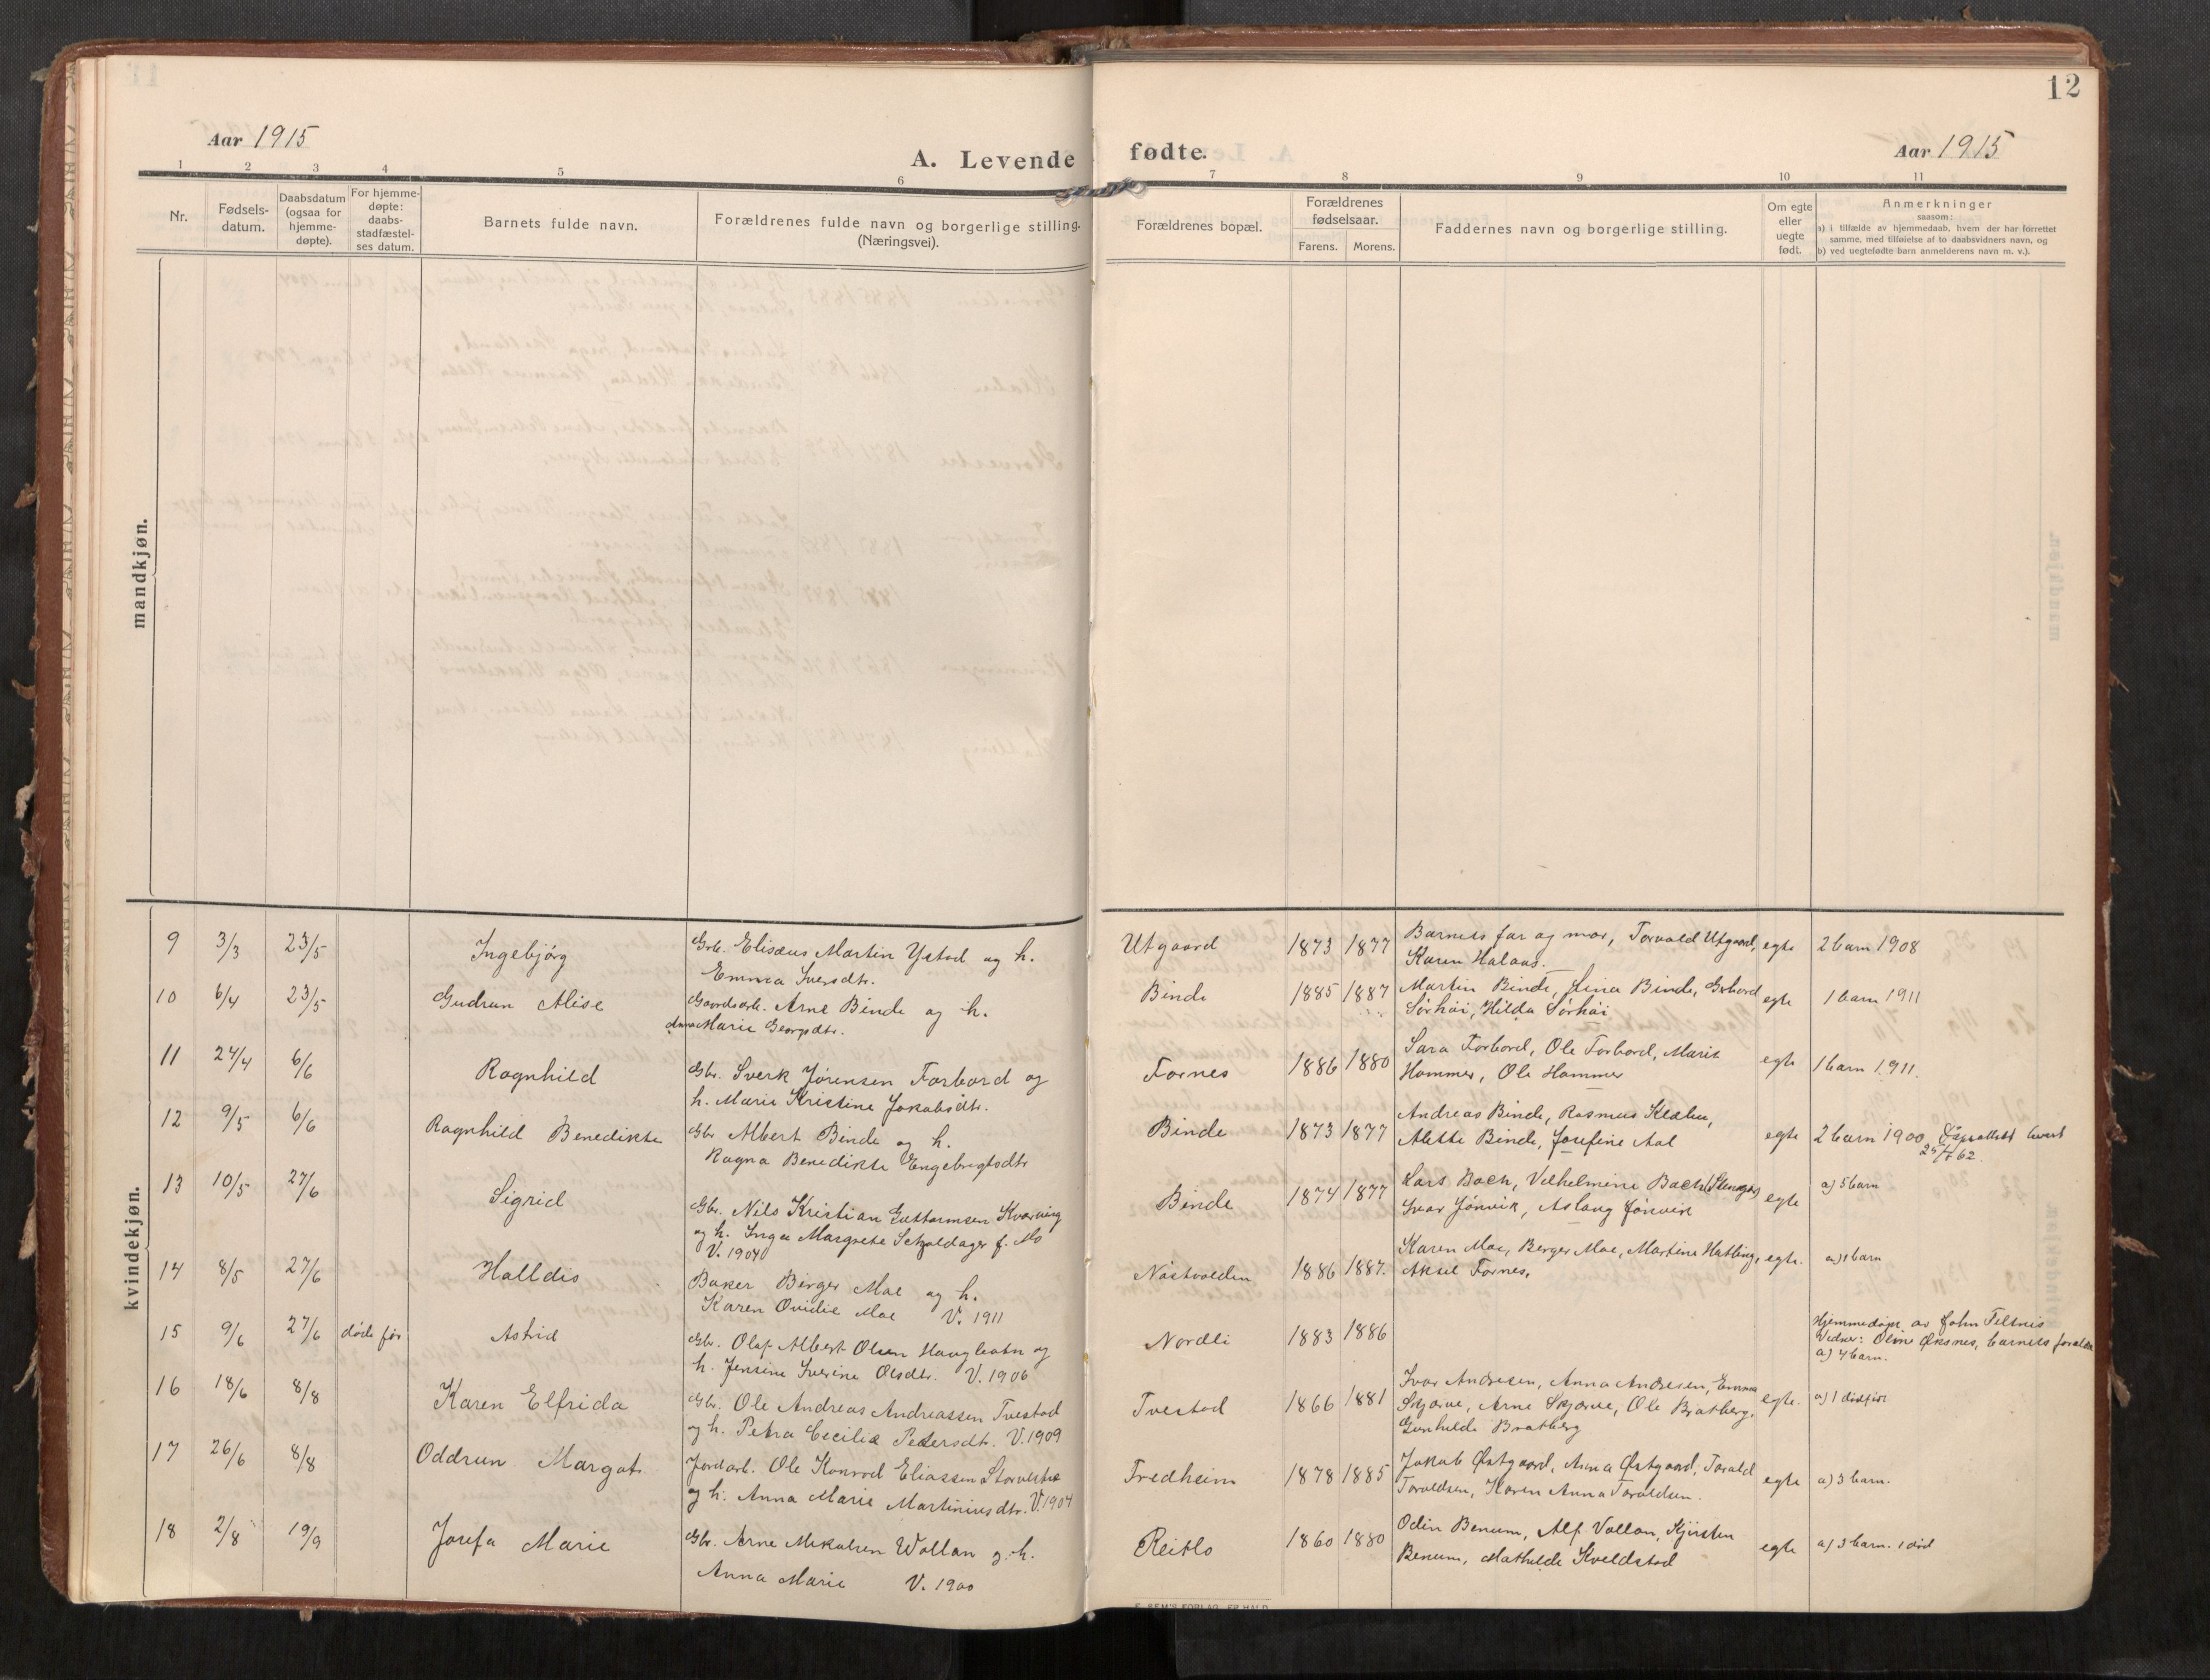 12
Aar 1915
A. Levende fødte.
Aar 1915
1 2 3 4 5 6 7 8 9 10 11
Nr.
Fødsels-
datum.
Daabsdatum
(ogsaa for
hjemme-
døpte).
For hjemme-
døpte:
daabs-
stadfæstel-
ses datum.
Barnets fulde navn.
Forældrenes fulde navn og borgerlige stilling.
(Næringsvei).
Forældrenes bopæl.
Forældrenes
fødselsaar.
Farens. Morens.
Faddernes navn og borgerlige stilling.
Om egte
eller
uegte
født.
Anmerkninger
saasom:
a) i tilfælde av hjemmedaab, hvem der har forrettet
samme, med tilføielse af to daabsvidners navn, og
b) ved uegtefødte barn anmelderens navn m. v.).
mandkjøn.
kvindekjøn.
9 3/3 23/5 Ingebjørg Grb. Elisæus Martin Ystad og h. Utgaard 1873 1877 Barnets far og mor, Torvald Utgaard, egte 2 barn 1908
Emma Iversdtr. Karen Halaas.
10 6/4 23/5 Gudrun Alise Gaardarb. Arne Binde og h. Binde 1885 1887 Martin Binde, Lina Binde, egte 1 barn 1911
Anna Marie Georgsdtr. Sørhøi, Hilda Sørhøi
11 24/4 6/6 Ragnhild Gbr. Sverk Jørensen Forbord og Fornes 1886 1880 Sara Forbord, Ole Forbord, Marit egte 1 barn 1911.
h. Marie Kristine Jakobsdtr. Hammer, Ole Hammer
12 9/5 6/6 Ragnhild Benedikte Gbr Albert Binde og h. Binde 1873 1877 Andreas Binde, Rasmus Klæbu, egte 2 barn 1900
Ragna Benedikte Engebrigtsdtr Alette Binde, Josefine Aal
13 10/5 27/6 Sigrid Gbr. Nils Kristian Guttormsen Kvarving Binde 1874 1877 Lars Bach, Vilhelmine Bach egte a) 5 barn
og h. Inga Margrete f. Mo Ivar Jønvik, Aslaug Jønvik
V. 1904
14 8/5 27/6 Halldis Baker Birger Moe og h. Nøstvolden 1886 1887. Karen Moe, Berger Moe, Martine Hatling, egte. a) 1 barn
Karen Ovidie Moe V. 1911 Aksel Fornes,
15 9/6 27/6 døde før Astrid Gbr. Olaf Albert Olsen Hauglvatn og Nordli 1883 1886 Hjemmedøpt av John Feltnis
h. Jensine Iverine Olsdtr. V. 1906 Vidner: Oline Øksnes, barnets forældre
a) 4 barn.
16 18/6 8/8 Karen Elfrida Gbr. Ole Andreas Andreassen Tvestad Tvestad 1866 1881 Ivar Andresen, Anna Andresen, Emma egte. a) 1 dødfødt
og h. Petra Cecilie Pedersdtr. V. 1909 Skjørve, Arne Skjørve, Ole Bratberg,
Gunhilde Bratberg
17 26/6 8/8 Oddrun Margot Jordarb. Ole Konrad Eliassen Storvestre Fredheim 1878 1885 Jakob Østgaard, Anna Østgaard, Torald egte a) 3 barn.
og h. Anna Marie Martiniusdtr. V. 1904 Toraldsen, Karen Anna Toraldsen.
18 2/8 19/9 Josefa Marie Gbr. Arne Mikalsen Wollan og h. Reitlo 1860 1880 Odin Benum, Alf Vollan, Kjirsten egte a) 3 barn. 1 død
Anna Marie V. 1900 Benum, Mathilde Kveldstad